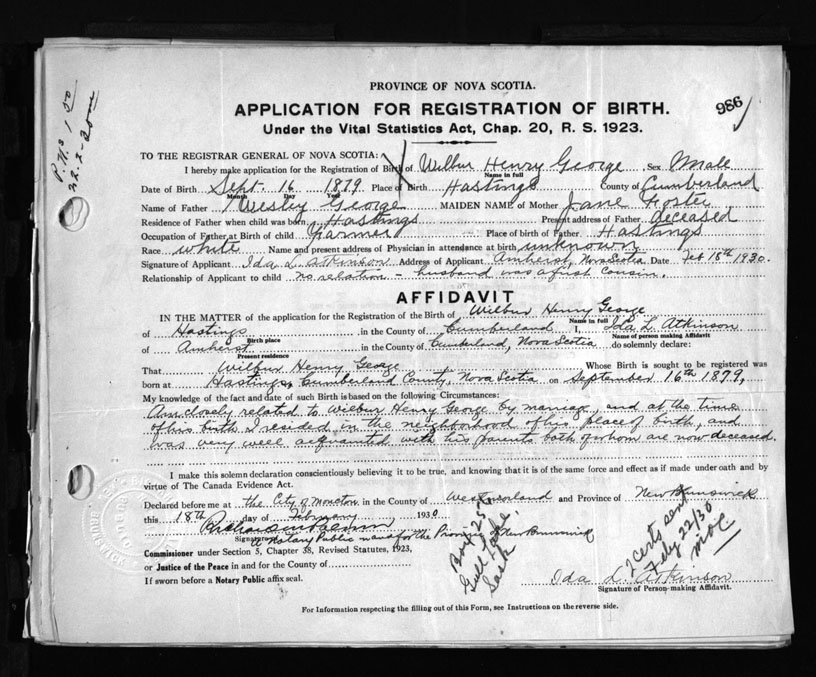 PROVINCE OF NOVA SCOTIA.
986
APPLICATION FOR REGISTRATION OF BIRTH.
Under the Vital Statistics Act, Chap. 20, R. S. 1923.
TO THE REGISTRAR GENERAL OF NOVA SCOTIA:
I hereby make application for the Registration of Birth of Wilbur Henry George Sex Male
Name in full
Date of Birth Sept. 16 1879 Place of Birth Hastings County of Cumberland
Month Day Year
Name of Father Wesley George MAIDEN NAME of Mother Jane Foster
Residence of Father when child was born Hastings Present address of Father deceased
Occupation of Father at Birth of child Farmer Place of birth of Father Hastings
Race white Name and present address of Physician in attendance at birth unknown
Signature of Applicant Ida L. Atkinson Address of Applicant Amherst, Nova Scotia Date Feb 18th 1930.
Relationship of Applicant to child no relation - husband was a first cousin.
AFFIDAVIT
IN THE MATTER of the application for the Registration of the Birth of Wilbur Henry George
Name in full
of Hastings in the County of Cumberland I, Ida L. Atkinson
Birth place Name of person making Affidavit
of Amherst in the County of Cumberland, Nova Scotia do solemnly declare:
Present residence
That Wilbur Henry George Whose Birth is sought to be registered was
born at Hastings, Cumberland County, Nova Scotia on September 16th 1879,
My knowledge of the fact and date of such Birth is based on the following Circumstances:
Am closely related to Wilbur Henry George by marriage, and at the time
of his birth I resided in the neighborhood of his place of birth, and
was very well acquainted with his parents both of whom are now deceased.
I make this solemn declaration conscientiously believing it to be true, and knowing that it is of the same force and effect as if made under oath and by
virtue of The Canada Evidence Act.
Declared before me at the City of Moncton in the County of Westmorland and Province of New Brunswick
this 18th day of February 1930
Signature
A Notary Public in and for the Province of New Brunswick
Commissioner under Section 5, Chapter 38, Revised Statutes, 1923,
or Justice of the Peace in and for the County of
If sworn before a Notary Public affix seal.
Box 225
Gull Lake,
Sask
2 Certs sent
Feby 22/30
Ida L. Atkinson
Signature of Person making Affidavit.
For Information respecting the filling out of this Form, see Instructions on the reverse side.